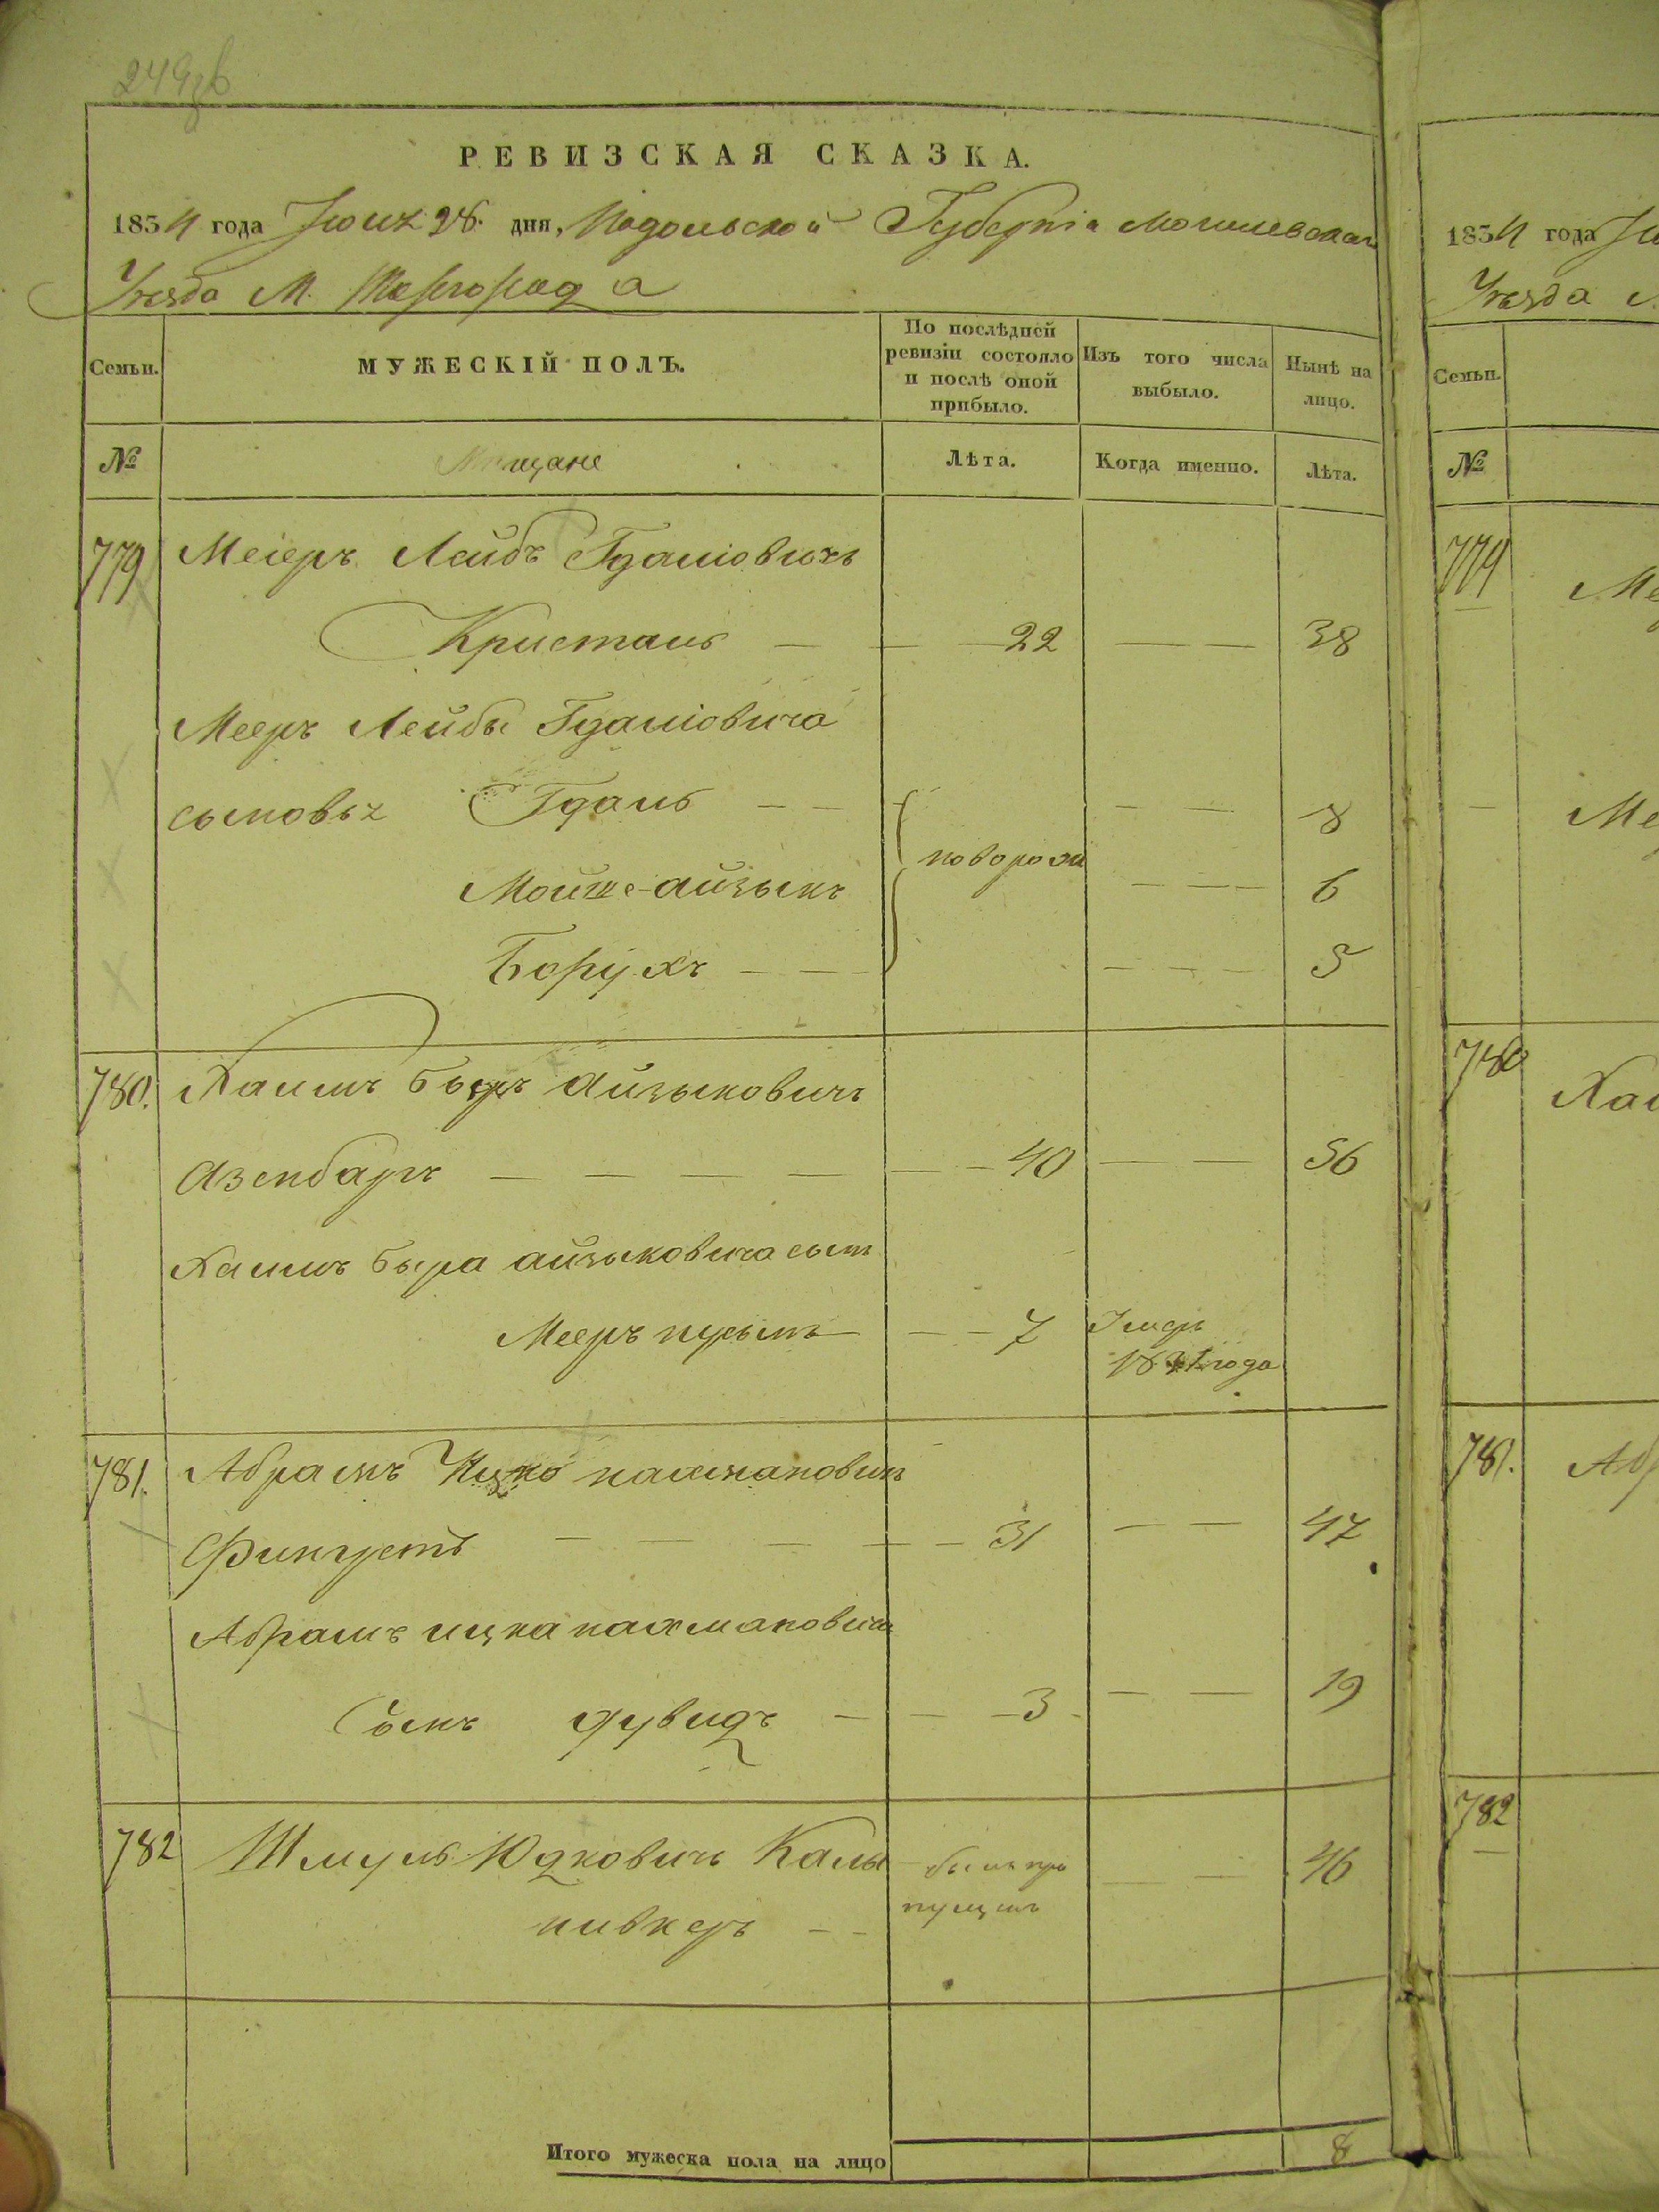 РЕВИЗСКАЯ СКАЗКА.
1854 года Июня 28 дня, Подольской Губерніи Могилевскаго
Уѣзда М. Шаргорода
Семьи.
МУЖЕСКІЙ ПОЛЪ.
По послѣдней ревизіи состояло и послѣ оной прибыло.
Изъ того числа выбыло.
Нынѣ на лицо.
№
Мещане
Лѣта.
Когда именно.
Лѣта.
779 Меіеръ Лейбъ Гдаліовичъ
Кристаль — — — 22 — — 38
Мееръ Лейбы Гдаліовича
сыновья Гдаль — — — — 8
Мойше-айзыкъ новорож — — — 6
Борухъ — — — — — 5
780. Хаимъ Беръ Айзыковичъ
Азенбаргъ — — — — — — 40 — — 56
Хаимъ Бера айзыковича сынъ
Мееръ — — 7 Умеръ
года
781. Абрамъ Ицко нахмановичъ
Фингретъ — — — — — 31 — — 47
Абрамъ ицка нахмановича
Сынъ дувидъ — — — 3 — — 19
782 Шмуль Юдковичъ Каль — былъ про — — 46
никеръ — — пущенъ
Итого мужеска пола на лицо 8
1854 года
Уѣзда
Семьи.
№
779
780
781.
782